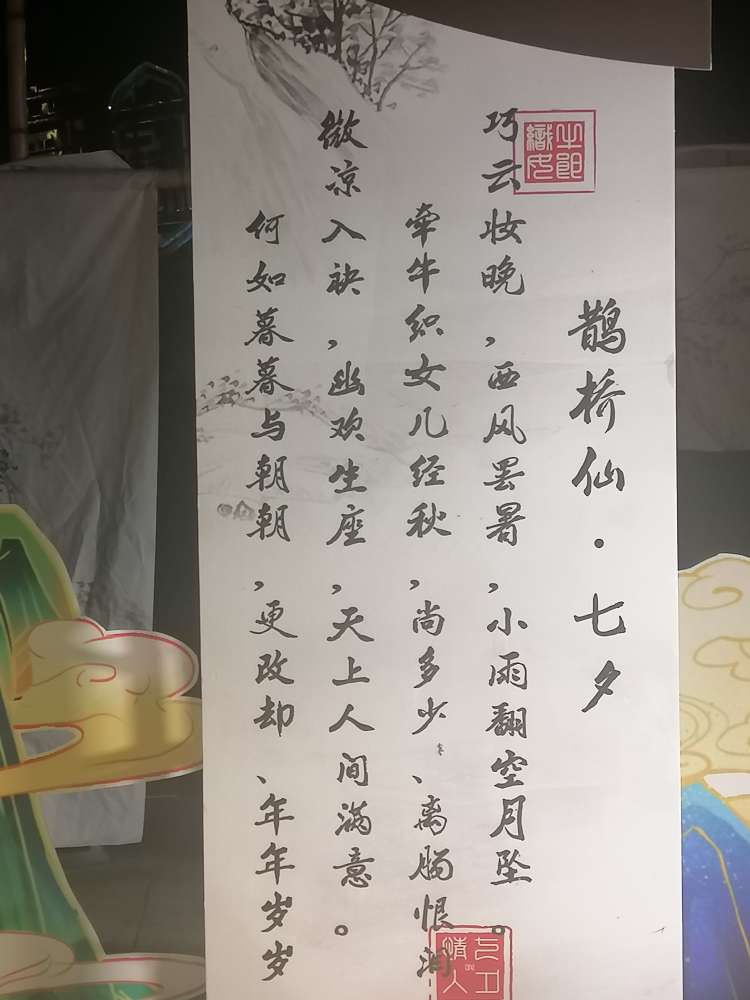 鹊桥仙·七夕
牛郎織女
巧云妆晚，西风罢暑，小雨翻空月坠。
牵牛织女几经秋，尚多少、离肠恨泪
微凉入袂，幽欢生座，天上人间满意。
何如暮暮与朝朝，更改却、年年岁岁
七夕情人